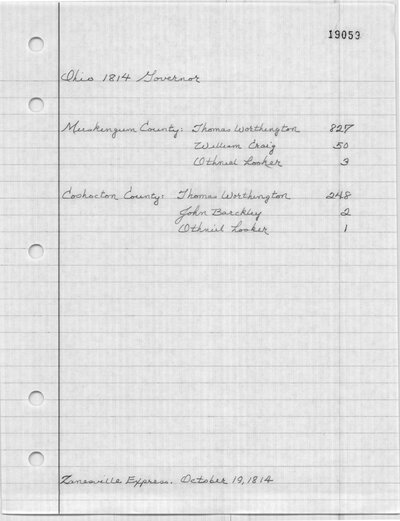 19053
Ohio 1814 Governor
Muskingum County: Thomas Worthington 827
William Craig 50
Othniel Looker 3
Coshocton County: Thomas Worthington 248
John Barckley 2
Othniel Looker 1
Zanesville Express. October 19, 1814